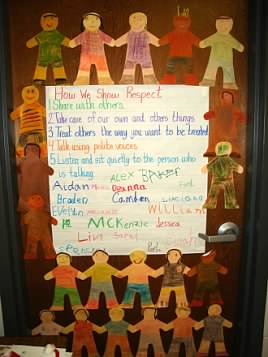 How We Show Respect
1 Share with others.
2 Take care of our own and others things
3 Treat others the way you want to be treated
4 Talk using polite voices
5 Listen and sit quietly to the person who
is talking.
ALEX BAKER
Aidan Deanna
Braden Camden Luciano
Evelyn WILLiam
MCKenzie Jessica